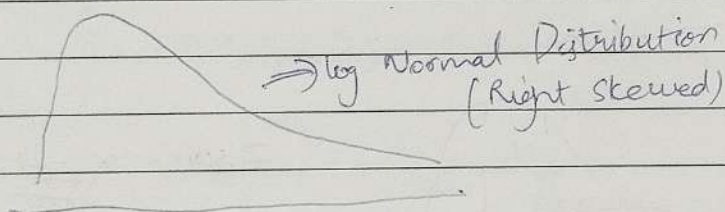 ⇒ log Normal Distribution
(Right Skewed)